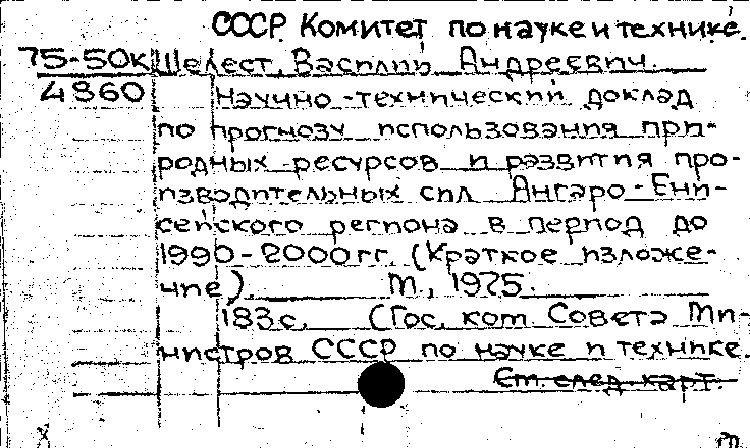 СССР. Комитет по науке и технике.
75-50к Шелест, Василий Андреевич.
4860 Научно-технический доклад
по прогнозу использования при-
родных ресурсов и развития про-
изводительных сил Ангаро-Ени-
сейского региона в период до
1990-2000гг. (Краткое изложе-
ние). М., 1975.
183с. (Гос. ком. Совета Ми-
нистров СССР по науке и технике.
См. след. карт.